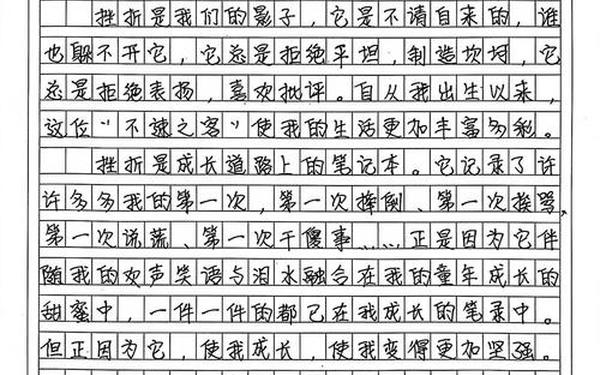 挫折是我们的影子，它是不请自来的，谁
也躲不开它，它总是拒绝平坦，制造坎坷，它
总是拒绝表扬，喜欢批评。自从我出生以来，
这位“不速之客”使我的生活更加丰富多彩。
挫折是成长道路上的笔记本。它记录了许
许多多我的第一次，第一次摔倒、第一次挨骂、
第一次说谎、第一次干傻事……正是因为它伴
随我的欢声笑语与泪水融合在我的童年成长的
甜蜜中，一件一件的都已在我成长的笔录中。
但正因为它，使我成长，使我变得更加坚强。